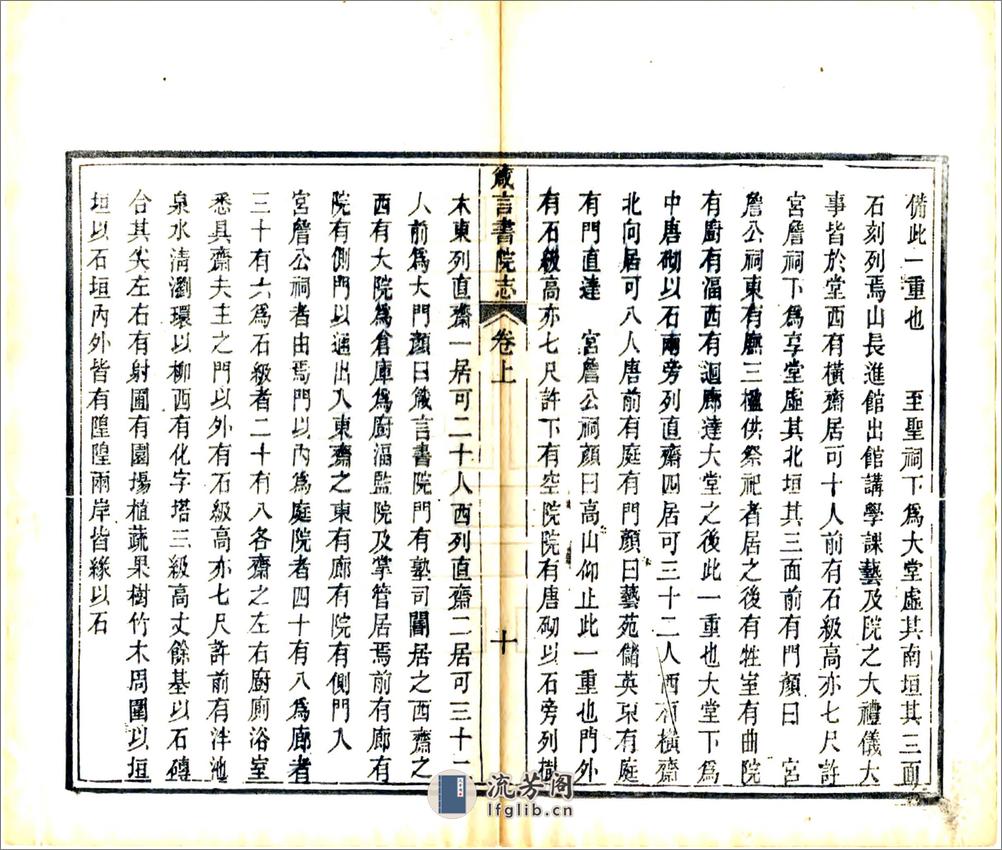 備此一重也　　至聖祠下爲大堂虛其南垣其三面
石刻列焉山長進館出館講學課藝及院之大禮儀大
事皆於堂西有橫齋居可十人前有石級高亦七尺許
宮詹祠下爲享堂虛其北垣其三面前有門顏曰　宮
詹公祠東有廳三楹供祭祀者居之後有牲室有曲院
有廚有湢西有迴廊達大堂之後此一重也大堂下爲
中唐砌以石兩旁列直齋四居可三十二人西有橫齋
北向居可八人唐前有庭有門顏曰藝苑儲英東有庭
有門直達　宮詹公祠顏曰高山仰止此一重也門外
有石級高亦七尺許下有空院院有唐砌以石旁列樹
箴言書院志
卷上
十
木東列直齋一居可二十人西列直齋二居可三十二
人前爲大門顏曰箴言書院門有塾司閽居之西齋之
西有大院爲倉庫爲廚湢監院及掌管居焉前有廊有
院有側門以通出入東齋之東有廊有院有側門入
宮詹公祠者由焉門以內爲庭院者四十有八爲廊者
三十有六爲石級者二十有八各齋之左右廚廁浴室
悉具齋夫主之門以外有石級高亦七尺許前有泮池
泉水清瀏環以柳西有化字塔三級高丈餘基以石磚
合其尖左右有射圃有園場植蔬果樹竹木周圍以垣
垣以石垣內外皆有隍隍兩岸皆緣以石
流芳阁
lfglib.cn